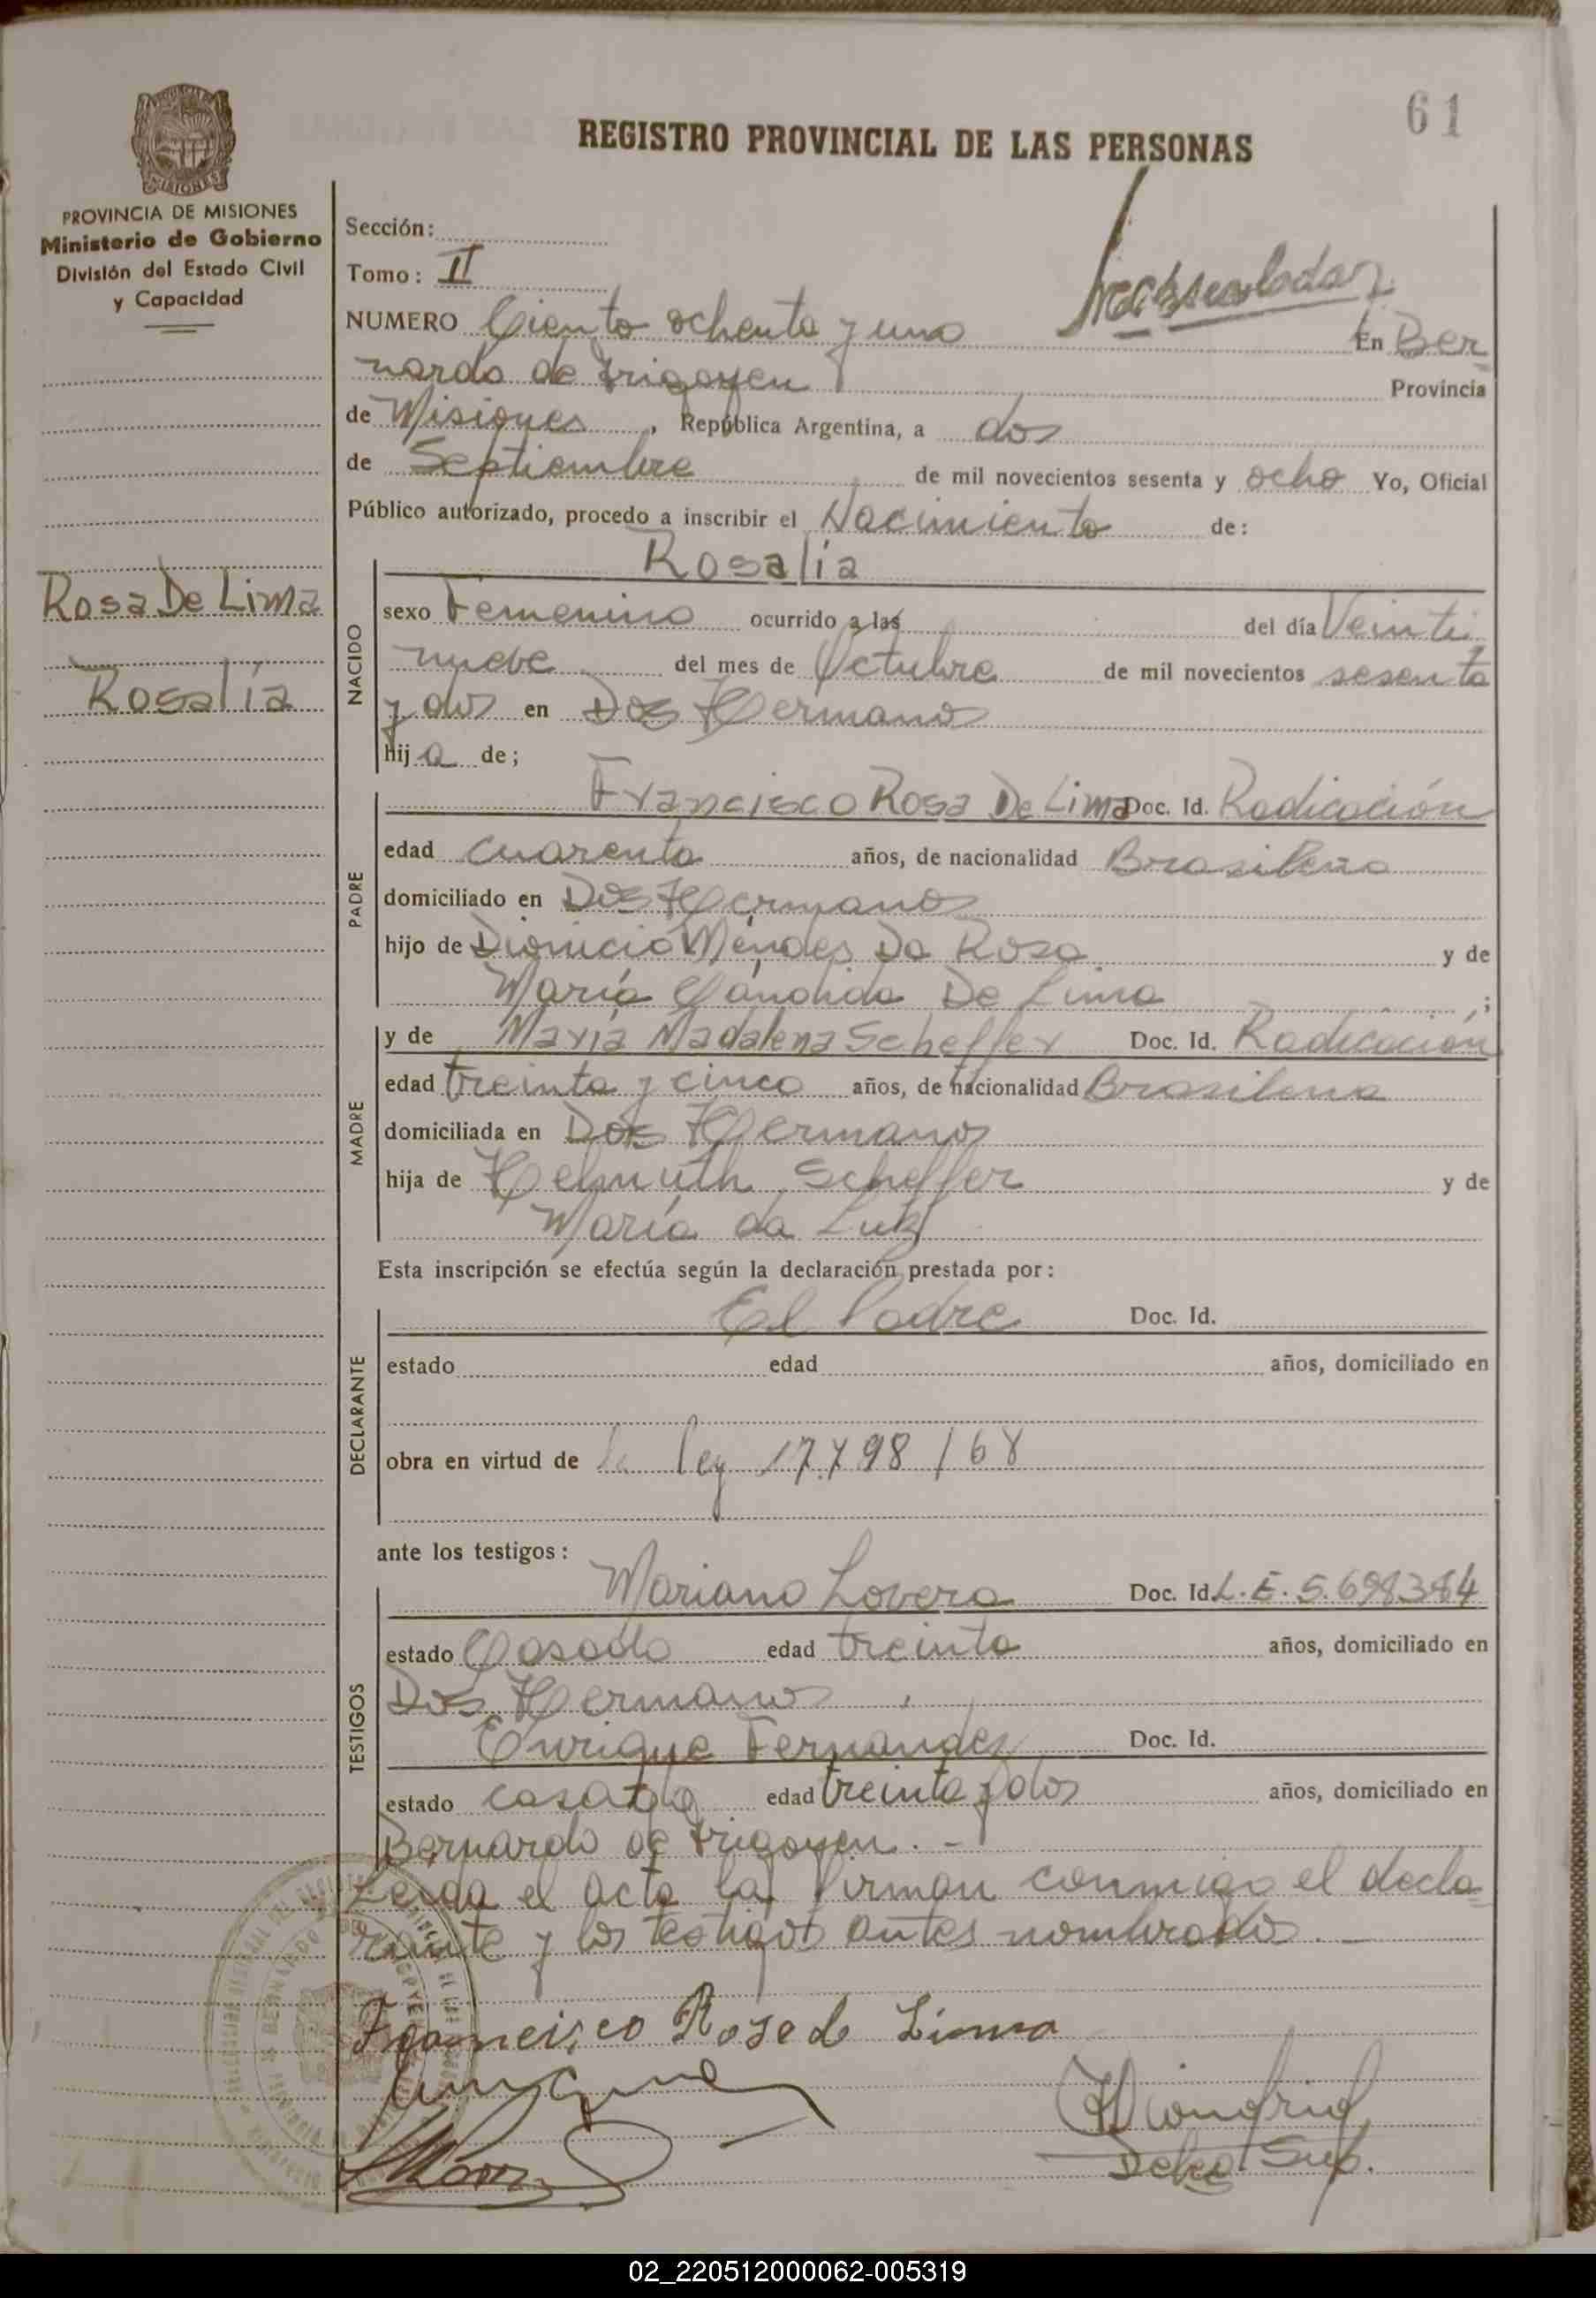 61
REGISTRO PROVINCIAL DE LAS PERSONAS
MISIONES
PROVINCIA DE MISIONES
Ministerio de Gobierno
División del Estado Civil
y Capacidad
Rosa De Lima
Rosalía
Sección:
Tomo: II
NUMERO Ciento ochenta y uno En Ber
nardo de Irigoyen Provincia
de Misiones, República Argentina, a dos
de Septiembre de mil novecientos sesenta y ocho Yo, Oficial
Público autorizado, procedo a inscribir el Nacimiento de:
Rosalía
NACIDO
sexo Femenino ocurrido a las del día Veinti
nueve del mes de Octubre de mil novecientos sesenta
y dos en Dos Hermanos
hija de;
PADRE
Francisco Rosa De Lima Doc. Id. Radicación
edad cuarenta años, de nacionalidad Brasilera
domiciliado en Dos Hermanos
hijo de Dionicio Méndes Da Rosa y de
María Cándida De Lima ;
MADRE
y de María Madalena Scheffer Doc. Id. Radicación
edad treinta y cinco años, de nacionalidad Brasilena
domiciliada en Dos Hermanos
hija de Helmuth Scheffer y de
María da Luz
Esta inscripción se efectúa según la declaración prestada por:
DECLARANTE
El Padre Doc. Id.
estado edad años, domiciliado en
obra en virtud de la ley 17.798/68
ante los testigos:
TESTIGOS
Mariano Lovera Doc. Id. L.E. 5.698.384
estado Casado edad treinta años, domiciliado en
Dos Hermanos.
Enrique Fernández Doc. Id.
estado casado edad treinta y dos años, domiciliado en
Bernardo de Irigoyen. -
Leida el acta la firman conmigo el decla
rante y los testigos antes nombrados. -
Francisco Rosa de Lima
Deleg Sup.
02_220512000062-005319